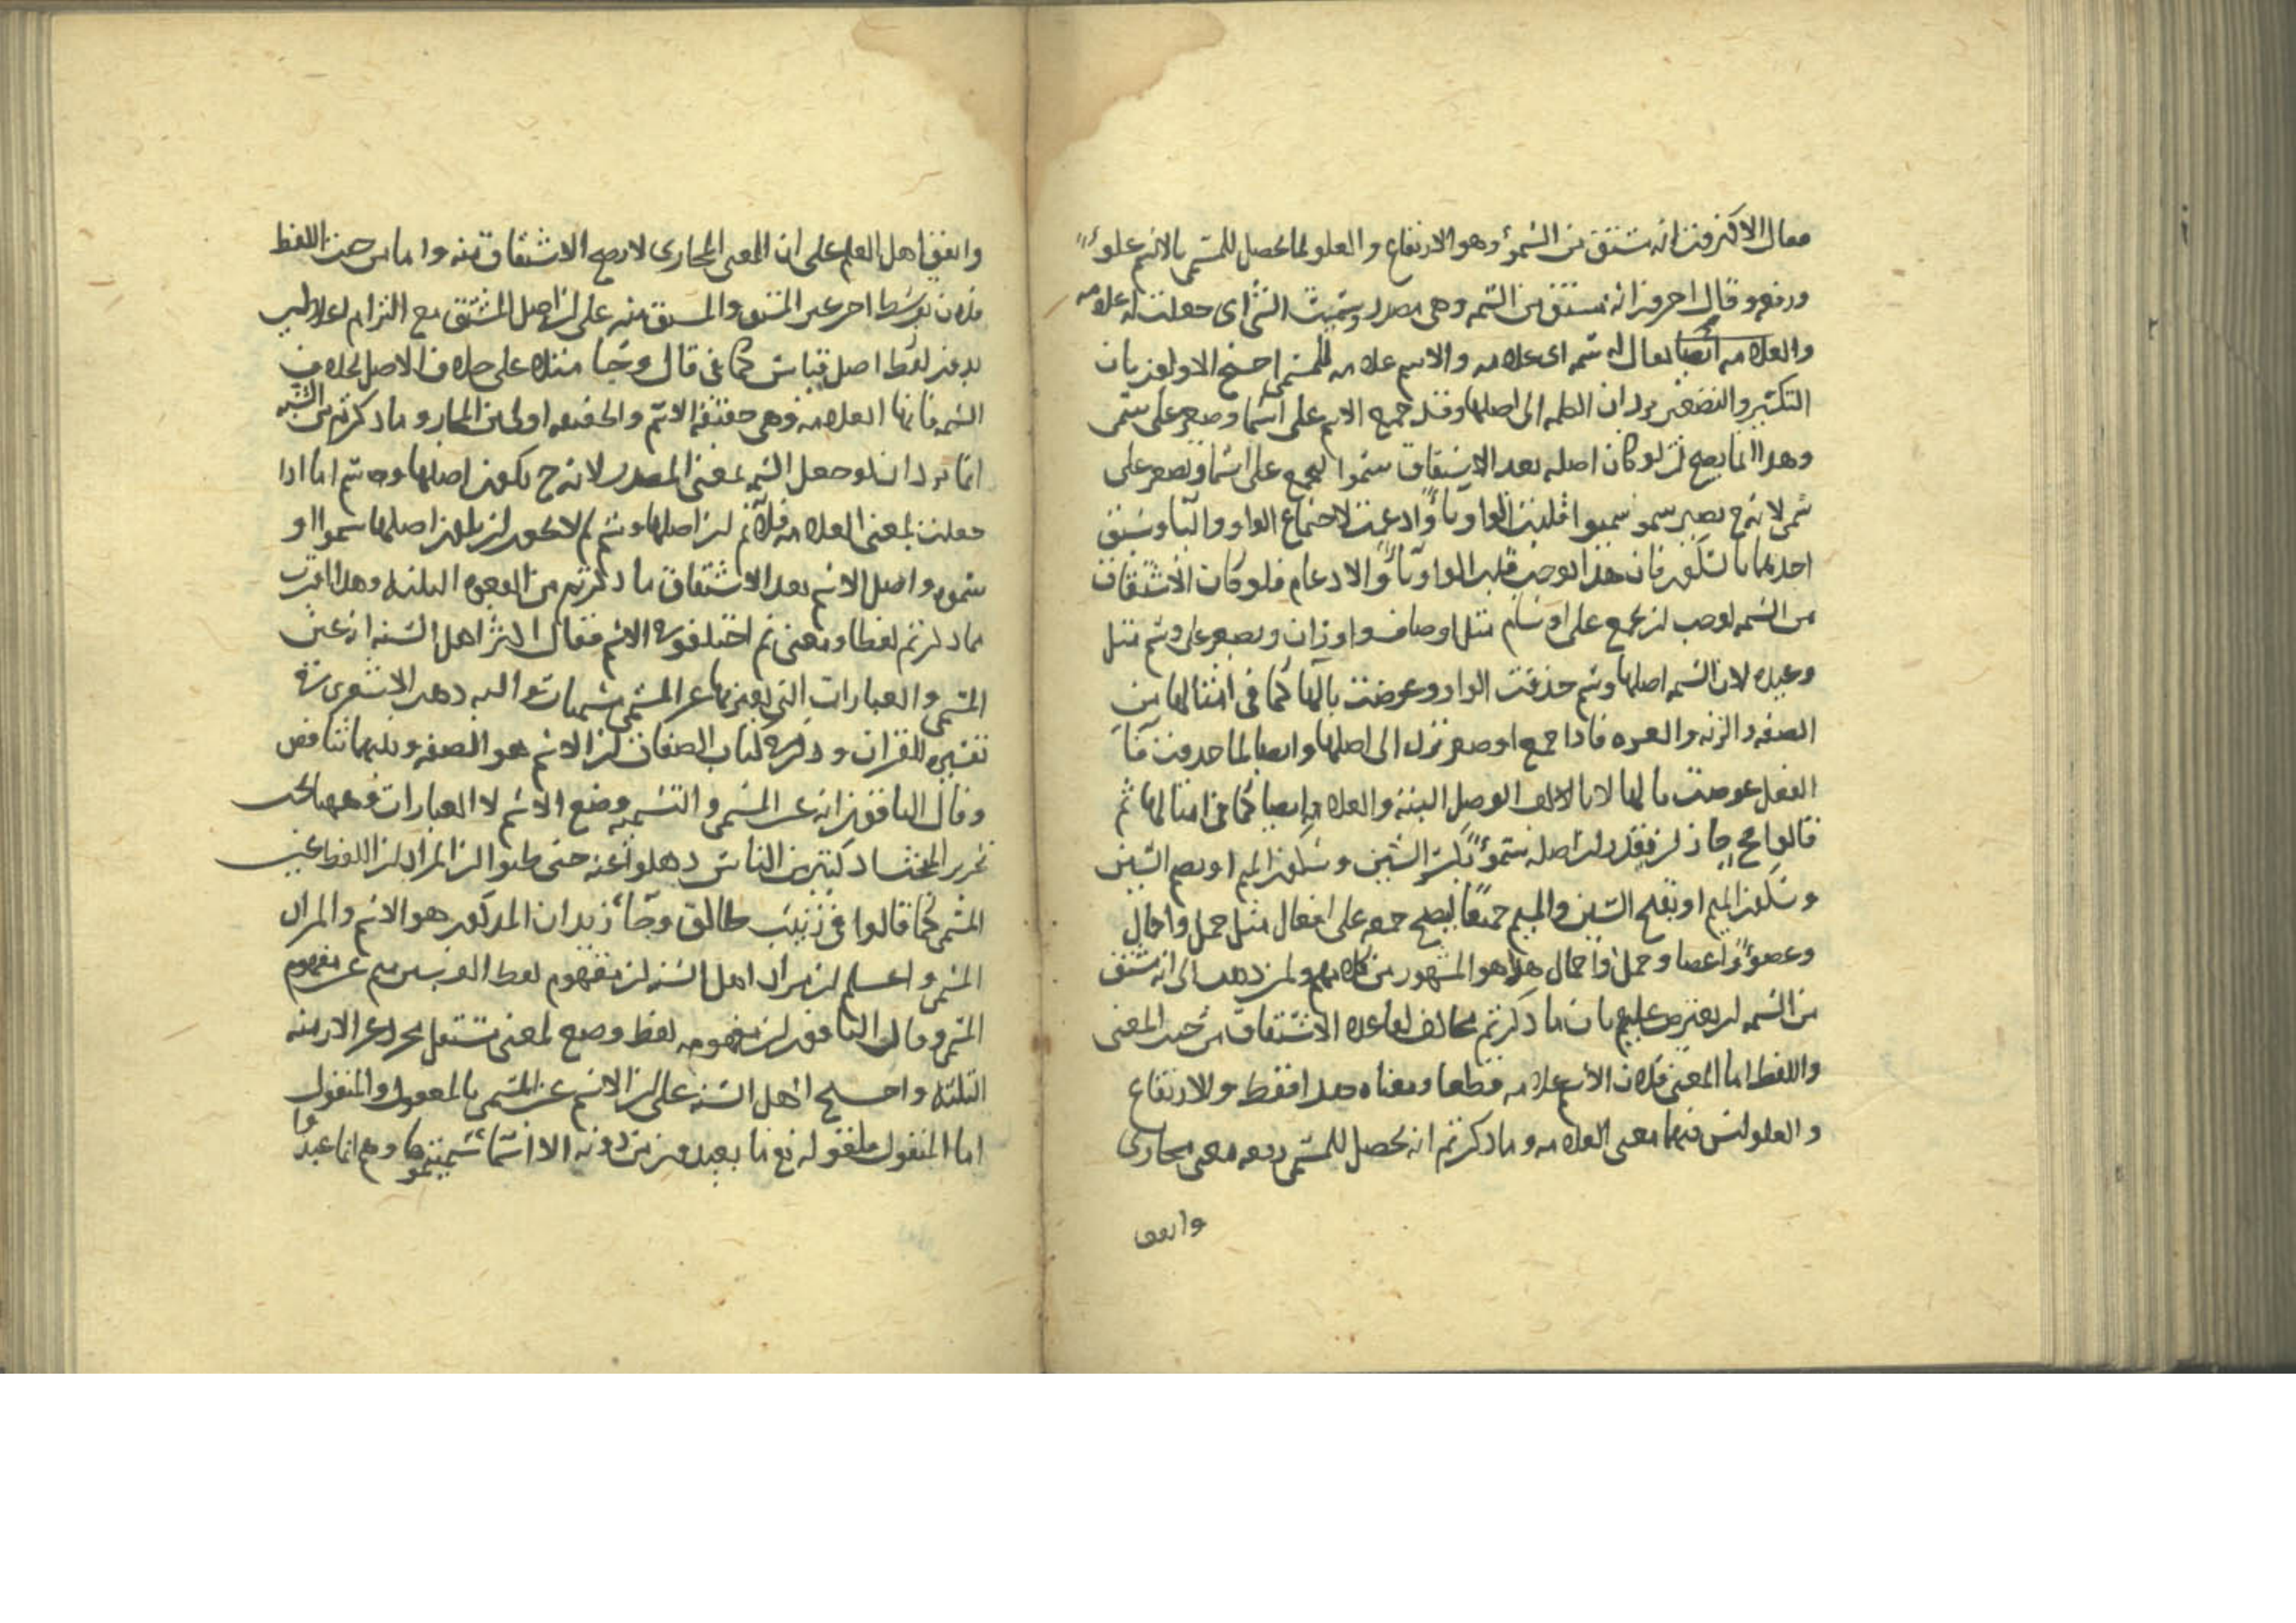 فقال الاكثرون انه مشتق من السمو وهو الارتفاع والعلو لما يحصل للمسمى بالاسم علو
ورفعه وقال اخرون انه مشتق من السمه وهى مصدر وسميت الشئ اى جعلت له علامه
والعلامه ايضا يقال له سمه اى علامه والاسم علامه للمسمى احتج الاولون بان
التكسير والتصغير يردان الكلمه الى اصلها وقد جمع الاسم على اسما وصغر على سمى
وهذا انما يصح لن لو كان اصله بعد الاشتقاق سموا ليجمع على اسما ويصغر على
سمى لانه ح يصير سمو سميوا قلبت الواو ياء وادغمت لاجتماع الواو والياء وسبق
احدهما بالسكون فان هذا يوجب قلب الواو ياء والادغام فلو كان الاشتقاق
من السمه لوجب لن يجمع على اوسام مثل اوصاف واوزان ويصغر على وسم مثل
وعيده لان السمه اصلها وسم حذفت الواو وعوضت بالها كما فى امثالها من
الصفه والزنه والعده فاذا جمع او صغر تردان الى اصلها وايضا لما حذفت فا
الفعل عوضت بالها لا بالالف الوصل البته والعلامه ايضا كما فى امثالها ثم
قالوا ح جاز لن يقدر لن اصله سمو بكسر السين وسكون الميم او بضم السين
وسكون الميم او بفتح السين والميم جميعا ليصح جمعه على افعال مثل حمل واحمال
وعضو واعضا وجمل واجمال هذا هو المشهور من كلامهم ولمن ذهب الى انه مشتق
من السمه لن يعترض عليهم بان ما ذكرتم مخالف لقاعده الاشتقاق من حيث المعنى
واللفظ اما المعنى فلان الاسم علامه قطعا ومعناه هذا فقط والارتفاع
والعلو ليس فيهما معنى العلامه وما ذكرتم انه يحصل للمسمى رفعه معنى مجازى
واتفق
واتفق اهل العلم على ان المعنى المجازى لا يصح الاشتقاق منه واما من حيث اللفظ
فلان توسط اخر غير المشتق والمشتق منه على لن اصل المشتق مع التزام اعلاطيب
بدون لفظ اصل قياس كما فى قال وجبا منتله على حلاف الاصل بخلاف
السمه فانها العلامه وهى حقيقه الاسم والحقيقه اولى من المجاز وما ذكرتم من الشبه
انما يرد ان لو جعل السمه بمعنى المصدر لانه ح يكون اصلها وسم اما اذا
جعلت بمعنى العلامه فلا نم لن اصلها وسم لم لا يجوز لن يكون اصلها سموا او
سموه واصل الاسم بعد الاشتقاق ما ذكرتم من الوجوه الثلثه وهذا اقرب
مما ذكرتم لفظا ومعنى ثم اختلفوا فى الاسم فقال اكثر اهل السنه انه عين
المسمى والعبارات التى يعبر بها عن المسمى تسميات واليه ذهب الاشعرى فى
تفسيره للقران وذكر فى كتاب الصفات لن الاسم هو الصفه وبينهما تناقض
وقال الباقون انه غير المسمى والتسميه وضع الاسم لا العبارات وههنا يجب
تحرير المبحث اذ كثير من الناس ذهلوا عنه حتى ظنوا لن المراد لن اللفظ عين
المسمى كما قالوا فى زينب طالق وجاء زيد ان المذكور هو الاسم والمراد
المسمى واعلم لن مراد اهل السنه لن مفهوم لفظ العربسىن سم عن مفهوم
المسمى وقال الباقون لن مفهومه لفظ وضع لمعنى مستقل مجرد عن الازمنه
الثلثه واحتج اهل السنه على لن الاسم عين المسمى بالمعقول والمنقول
اما المنقول فلقوله تع ما يعبدون من دونه الا اسما سميتموها وهم انما عبدوا